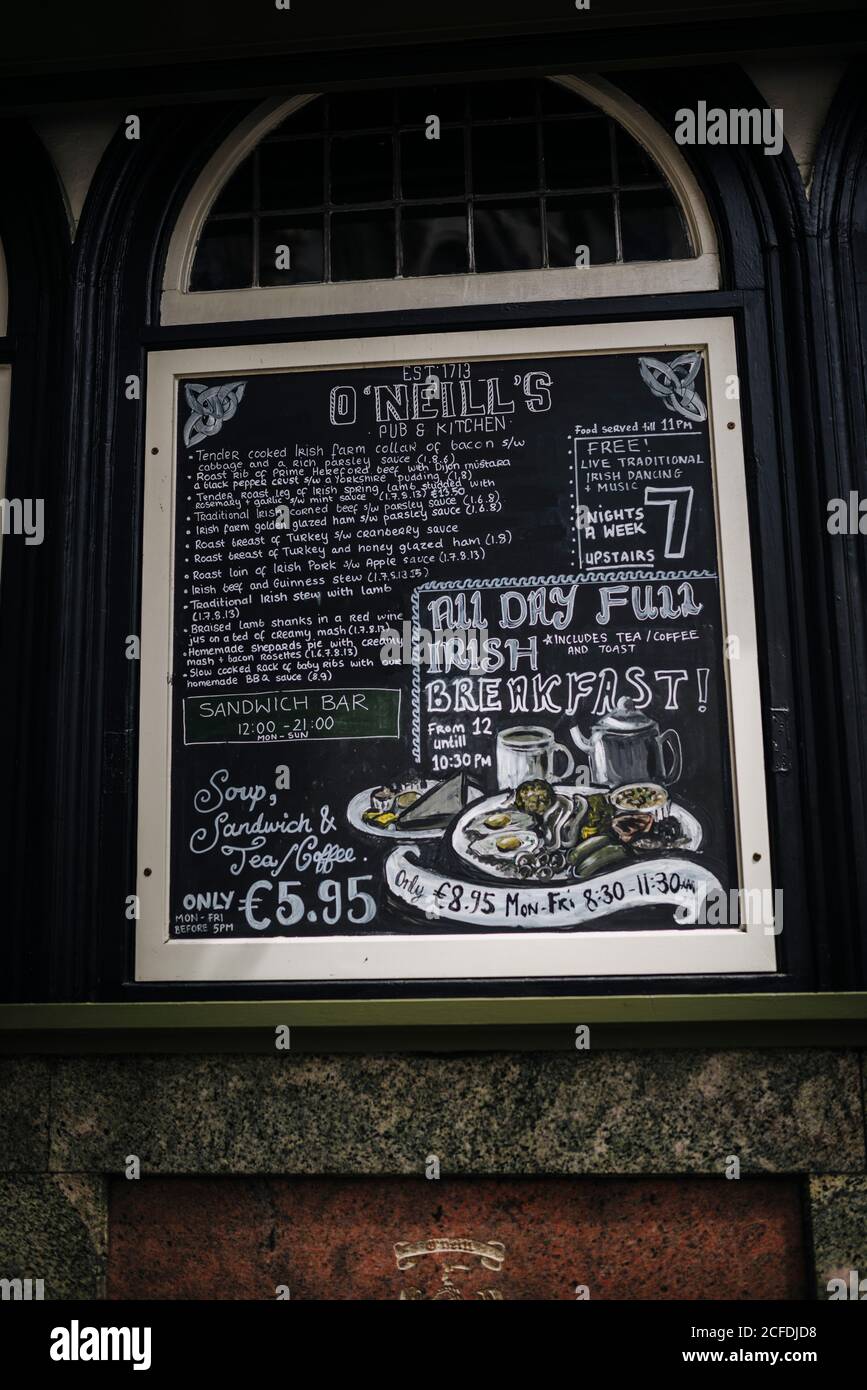 EST. 1713
O'NEILL'S
PUB & KITCHEN
• Tender cooked Irish farm collar of bacon s/w
cabbage and a rich parsley sauce (1.8.6)
• Roast Rib of Prime Hereford beef with Dijon mustard
a black pepper crust s/w a Yorkshire pudding (1.8)
• Tender roast leg of Irish spring lamb studded with
rosemary + garlic s/w mint sauce (1.7.8.13) €13.50
• Traditional Irish corned beef s/w parsley sauce (1.6.8)
• Irish farm golden glazed ham s/w parsley sauce (1.6.8)
• Roast breast of Turkey s/w cranberry sauce
• Roast breast of Turkey and honey glazed ham (1.8)
• Roast loin of Irish Pork s/w Apple sauce (1.7.8.13)
• Irish beef and Guinness stew
• Traditional Irish stew with lamb
(1.7.8.13)
• Braised lamb shanks in a red wine
jus on a bed of creamy mash (1.7.8.13)
• Homemade shepards pie with creamy
mash + bacon Rosettes (1.6.7.8.13)
• Slow cooked Rack of baby Ribs with our
homemade BBQ sauce (8.9)
Food served till 11PM
FREE!
LIVE TRADITIONAL
IRISH DANCING
+ MUSIC
7
NIGHTS
A WEEK
UPSTAIRS
ALL DAY FULL
IRISH *INCLUDES TEA/COFFEE
AND TOAST
BREAKFAST!
From 12
untill
10:30 PM
SANDWICH BAR
12:00 - 21:00
MON - SUN
Soup,
Sandwich &
Tea/Coffee.
ONLY €5.95
MON - FRI
BEFORE 5PM
Only €8.95 Mon-Fri 8:30-11:30AM
O'neill
alamy
Image ID: 2CFDJD8
www.alamy.com